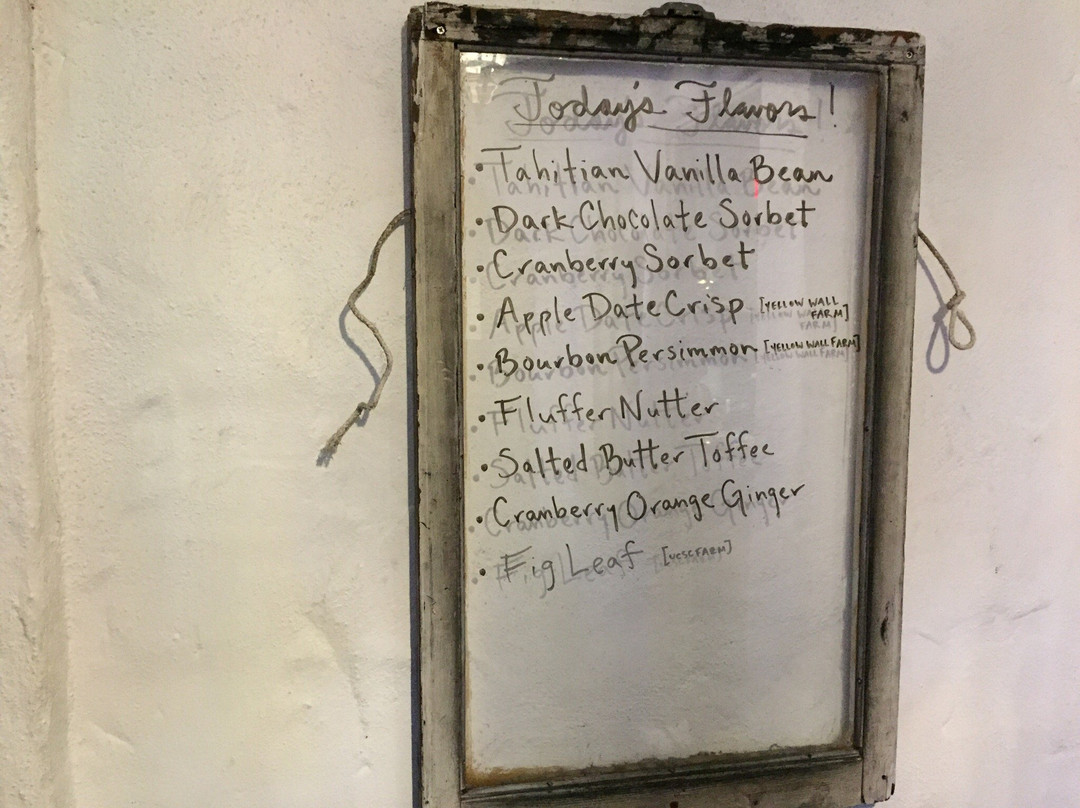 Today's Flavors!
• Tahitian Vanilla Bean
• Dark Chocolate Sorbet
• Cranberry Sorbet
• Apple Date Crisp [YELLOW WALL FARM]
• Bourbon Persimmon [YELLOW WALL FARM]
• Fluffer Nutter
• Salted Butter Toffee
• Cranberry Orange Ginger
• Fig Leaf [UCSC FARM]